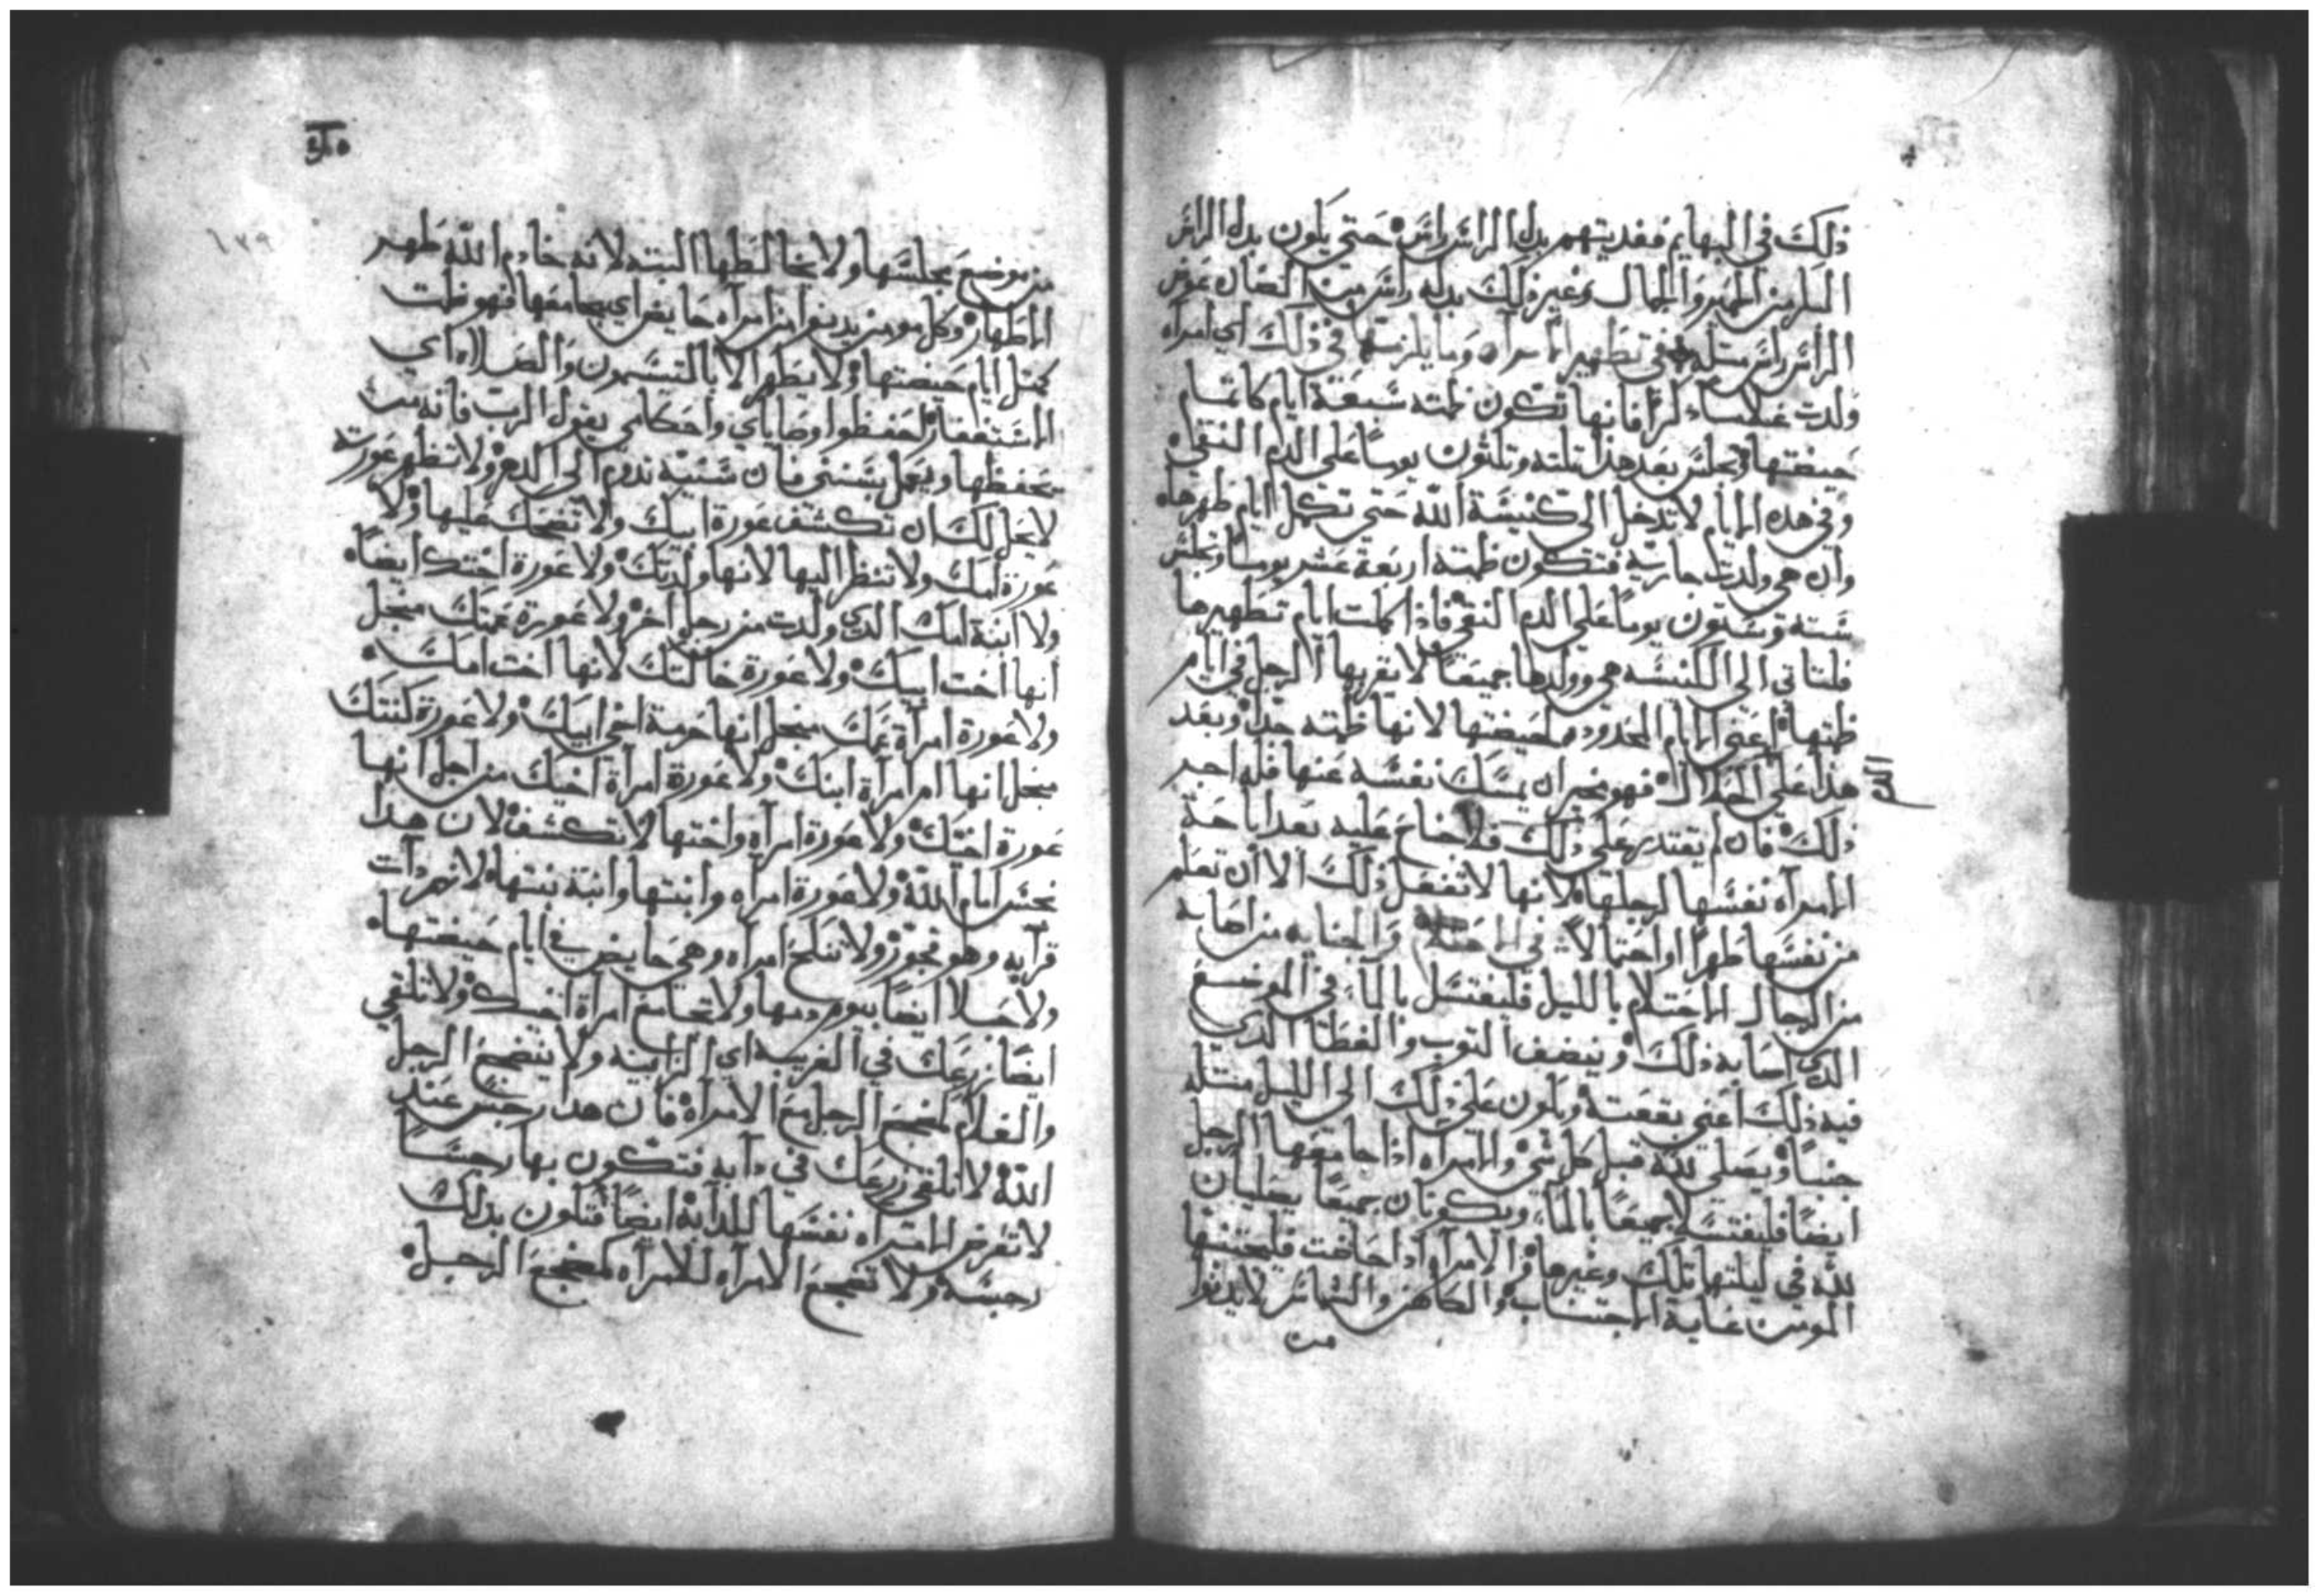 ذلك في البهايم ففديتهم بدل الراس راس حتي يكون بدل الراس
البكر من الحمير والجمال وغير ذلك بدله راس من الضان عوض
الراس راس مثله في تطهير الامراه وما يلزمها في ذلك اي امراه
ولدت غلاما ذكرا فانها تكون طمثه سبعة ايام كايام
حيضتها وتجلس بعد هذا ثلثه وثلثون يوما علي الدم النقي
وفي هذه الايام لا تدخل الي كنيسة الله حتي تكمل ايام طهرها
وان هي ولدت جاريه فتكون طمثه اربعة عشر يوما وتجلس
سته وستون يوما علي الدم النقي فاذا كملت ايام تطهيرها
فلتاتي الي الكنيسه هي وولدها جميعا لا يقربها الرجل في ايام
طمثها اعني الايام المحدوده لحيضتها لانها طمثه جدا وبعد
هذا علي الحلال فهو مخير ان يمسك نفسه عنها فله اجر
ذلك فان لم يقتدر علي ذلك فلا جناح عليه بعد اباحة
الامراه نفسها لرجلها لانها لا تفعل ذلك الا ان تعلم
من نفسها طهرا او احتمالا في والجنابه من اصابه
من الرجال الاحتلام بالليل فليغتسل بالما في الموضع
الذي اصابه ذلك وينضف الثوب والغطا الذي
فيه ذلك اعني بقعته ويكون علي ذلك الي الليل مثله
جنبا ويصلي لله قبل كل شي والامراه اذا جامعها الرجل
ايضا فليغتسلا جميعا بالما ويكونان جميعا يصليان
لله في ليلتها تلك وغيرها والامراه اذا حاضت فليجتنبها
المومن غاية الاجتناب والكاهن والشماس لا يدنوا
من
من موضع مجلسها ولا يخالطها البته لانه خادم الله طهر
الاطهار وكل مومن يدنوا من امراه حايض اي يجامعها فهو طمث
كمثل ايام حيضتها ولا يطهر الا بالتسهرون والصلاه اي
الاستغفار احفظوا وصاياي واحكامي يقول الرب فانه من
يحفظها ويعمل بسنني فان سنته تدوم الي الدهر ولا تظهر عورته
لا يحل لك ان تكشف عورة ابيك ولا تضحك عليها ولا
عورة امك ولا تنظر اليها لانها ولدتك ولا عورة اختك ايضا
ولا ابنة امك الذي ولدت من رجل اخر ولا عورة عمتك منجل
انها اخت ابيك ولا عورة خالتك لانها اخت امك
ولا عورة امراة عمك منجل انها حرمة اخي ابيك ولا عورة كنتك
منجل انها امراة ابنك ولا عورة امراة اخيك من اجل انها
عورة اخيك ولا عورة امراه واختها لا تكشف لان هذا
نجس امام الله ولا عورة امراه وابنتها وابنة بنتها لانهم ذات
قرابه وهو فجور ولا تنكح امراه وهي حايض في ايام حيضتها
ولا حبلا ايضا بيوم دمها ولا تجامع امراة اخيك ولا تلقي
ايضا زرعك في الغريبه اي الزانيه ولا يضجع الرجل
والغلام كمضجع الرجل مع الامراه فان هذا رجس عند
الله لا تلقي زرعك في دابه فتكون بها رجسا
لا تعرض الامراه نفسها للدابه ايضا فتكون بذلك
رجسه ولا تضجع الامراه للامراه كمضجع الرجل